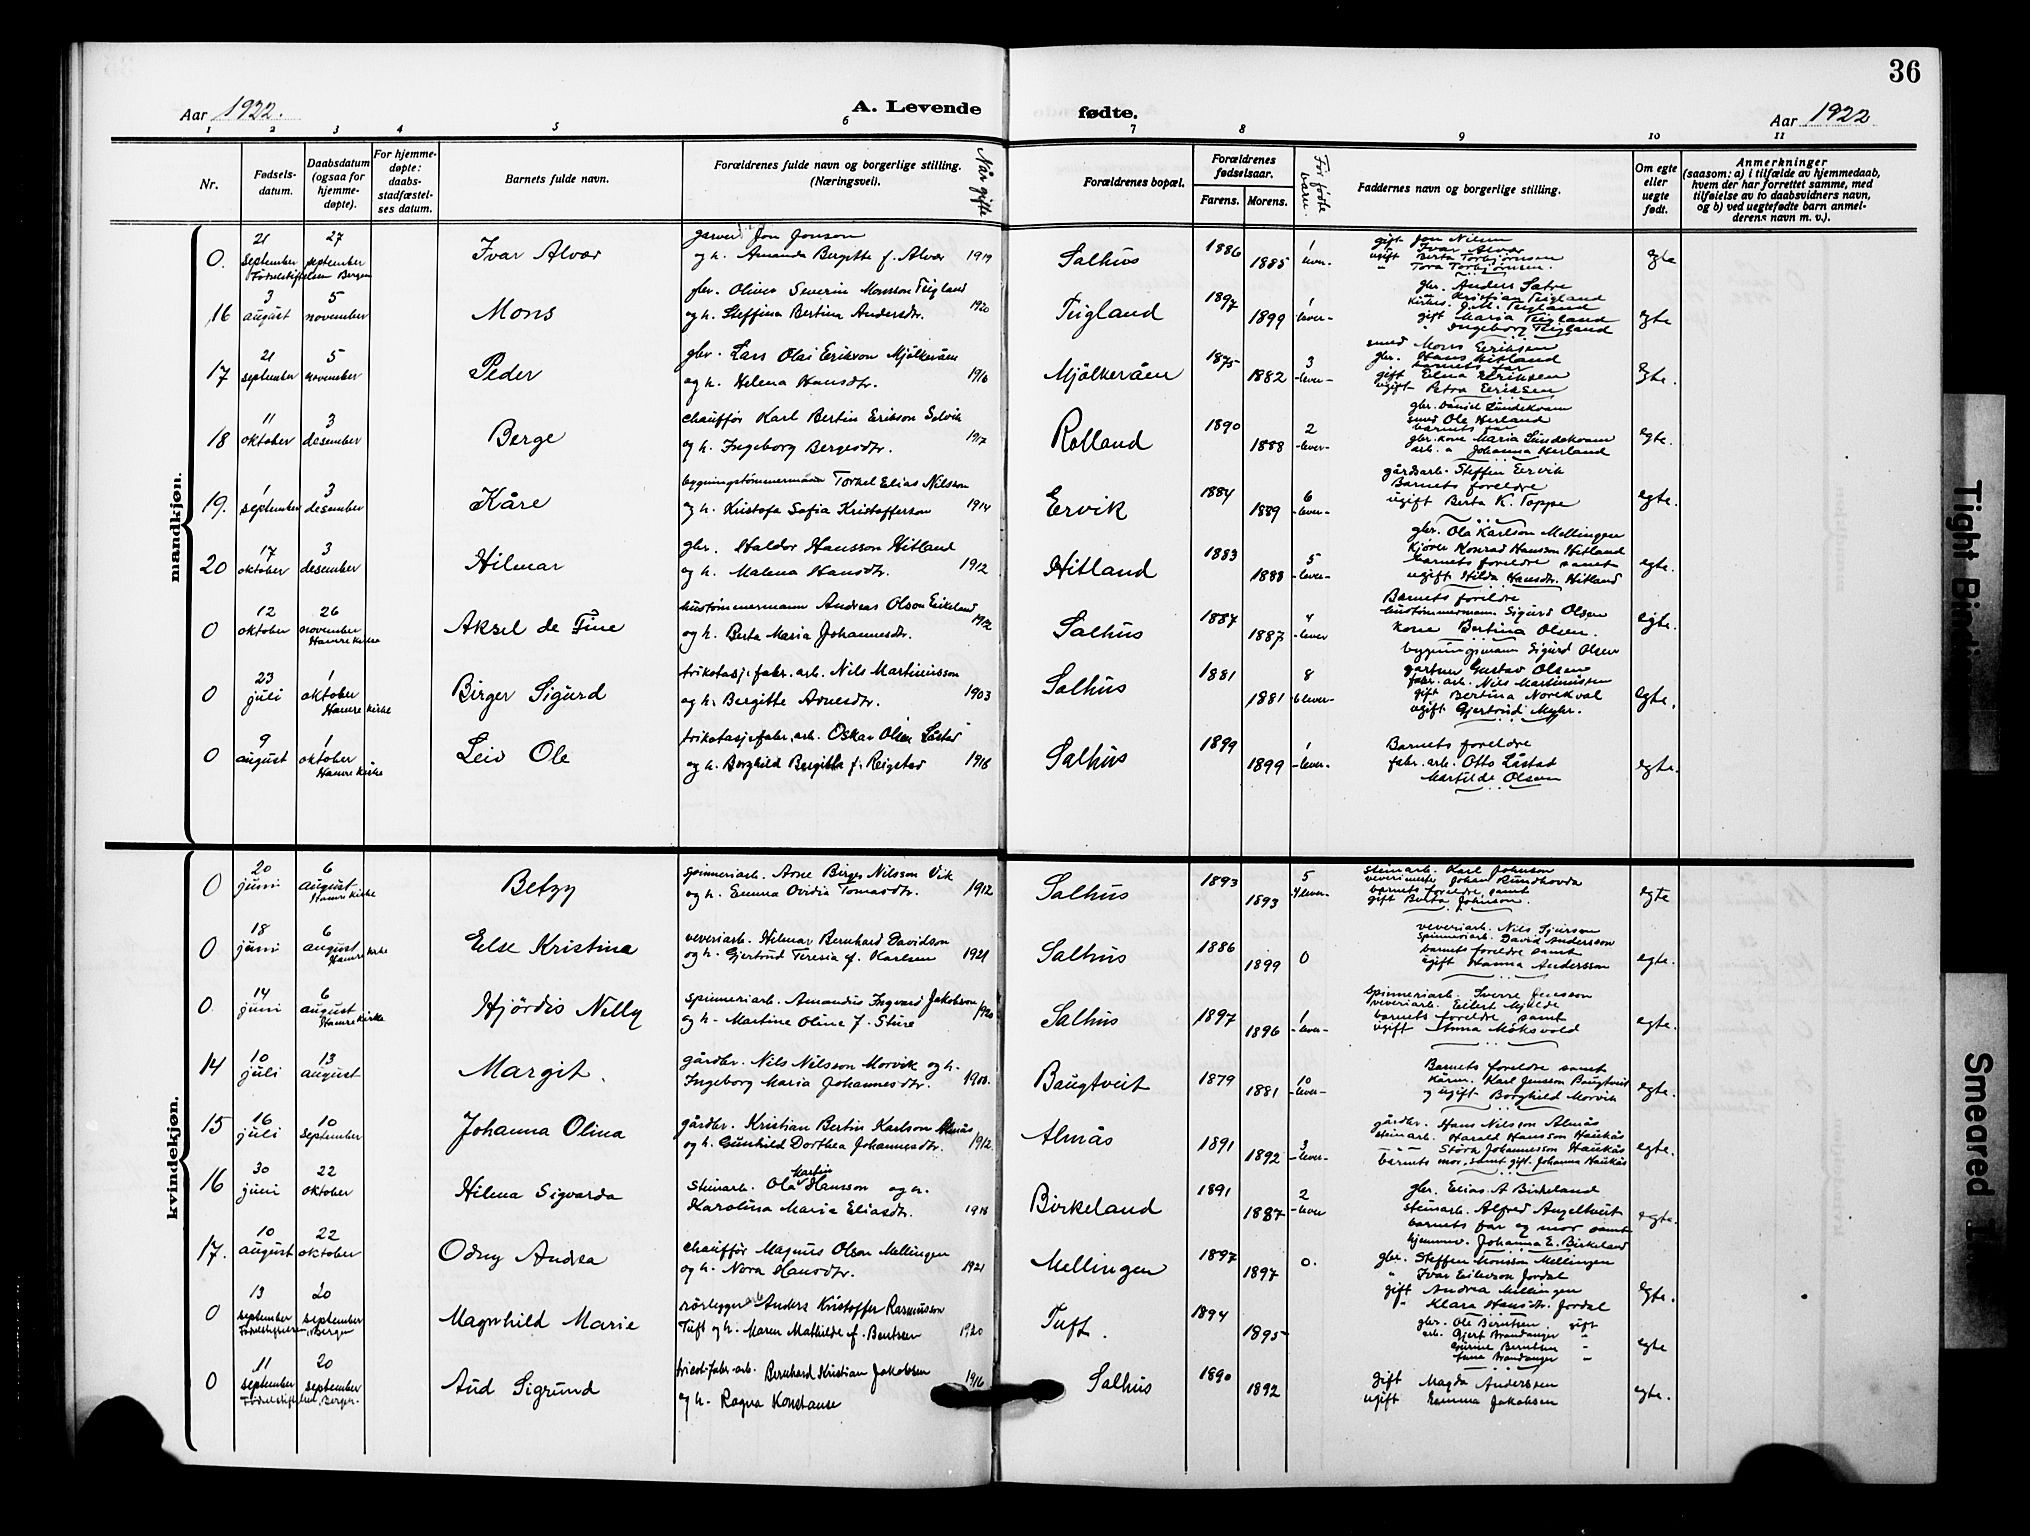 36
Aar 1922.
A. Levende fødte.
Aar 1922
1 2 3 4 5 6 7 8 9 10 11
Nr.
Fødsels-
datum.
Daabsdatum
(ogsaa for
hjemme-
døpte).
For hjemme-
døpte:
daabs-
stadfæstel-
ses datum.
Barnets fulde navn.
Forældrenes fulde navn og borgerlige stilling.
(Næringsvei).
Når gifte
Forældrenes bopæl.
Forældrenes
fødselsaar.
Farens. Morens.
Før fødte
barn.
Faddernes navn og borgerlige stilling.
Om egte
eller
uegte
født.
Anmerkninger
(saasom: a) i tilfælde av hjemmedaab,
hvem der har forrettet samme, med
tilføielse av to daabsvidners navn,
og b) ved uegtefødte barn anmel-
derens navn m. v.).
mandkjøn.
0. 21 september 27 september
Fødselstiftelsen Bergen
Ivar Alvær
garver Jon Jonson
og h. Amanda Bergitte f. Alvær 1919
Salhus 1886 1885 1 lever-
gift Jon Nilsen
Ivar Alvær
ugift Berta Torbjørnsen
" Tora Torbjørnsen.
egte
16 3 august 5 november
Mons
gbr. Oliver Severin Monsson Teigland
og h. Steffina Bertina Andersdtr. 1920
Teigland 1897 1899 1 -lever-
gbr. Anders Sætre
Kristian Teigland
gift Maria Teigland
" Ingeborg Teigland
egte
17 21 september 5 november
Peder
gbr. Lars Olai Erikson Mjølkeråen
og h. Helena Hansdtr. 1916
Mjølkeråen 1875 1882 3 -lever-
smed Mons Eriksen
gbr. Hans Hitland
barnets far
gift Elna Eriksen
ugift Petra Eriksen
egte.
18 11 oktober 3 desember
Berge
chauffør Karl Bertin Erikson Selvik
og h. Ingeborg Bergesdtr. 1917
Rolland 1890 1888 2 -lever-
gbr. Daniel Lundekvam
smed Ole Herland
barnets far
gbr. kone Maria Lundekvam
arb. " Johanna Herland
egte.
19. 1 september 3 desember
Kåre
bygningstømmermann Torkel Elias Nilsson
og h. Kristofa Sofia Kristofferson 1914
Ervik 1884 1889 6 -lever-
gårdsarb. Steffen Ervik
Barnets foreldre
ugift Berta K. Toppe
egte.
20 17 oktober 3 desember
Hilmar
gbr. Haldor Hansson Hitland
og h. Malena Hansdtr. 1912
Hitland 1883 1888 5 -lever-
gbr. Ola Karlson Mellingen
kjører Konrad Hansson Hitland
barnets foreldre samt
ugift Hilda Hansdtr. Hitland
egte.
0 12 oktober 26 november
Hamre kirke
Aksel de Fine
hustømmermann Andreas Olson Eikeland
og h. Berta Maria Johannesdtr. 1912
Salhus 1887 1887 4 -lever
Barnets foreldre
hustømmermann Sigurd Olsen
kone Bertina Olsen.
egte.
0 23 juli 1 oktober
Hamre kirke
Birger Sigurd
trikotasjefabr. arb. Nils Martinusson
og h. Bergitte Arnesdtr. 1903
Salhus 1881 1881 8 6 lever-
bygningsmann Sigurd Olsen
gartner Gustav Olsen
fabr. arb. Nils Martinussen
gift Bertina Norekval
ugift Gjertrud Myhr.
egte.
0 9 august 1 oktober
Hamre kirke
Leiv Ole
trikotasjefabr. arb. Oskar Olsen Låstad
og h. Borghild Bergitta f. Reigstad 1918
Salhus 1899 1899 1 -lever-
Barnets foreldre
fabr. arb. Otto Låstad
Matilde Olsen
egte.
kvindekjøn.
0 20 juni 6 august
Hamre kirke
Betzy
spinneriarb. Arne Birger Nilsson Vik
og h. Emma Ovidia Tomasdtr. 1912
Salhus 1893 1893 5 4 lever-
steinarb. Karl Johnson
vevermester Johan Rundhovda
barnets foreldre samt
gift Berta Johnson.
egte
0 18 juni 6 august
Hamre kirke
Else Kristina
veveriarb. Hilmar Bernhard Davidson
og h. Gjertrud Teresia f. Karlsen 1921
Salhus 1886 1899 0
veveriarb. Nils
spinneriarb. David Andersson
barnets foreldre samt
ugift Hanna Andersson
egte.
0 14 juni 6 august
Hamre kirke
Hjørdis Nelly
spinneriarb. Amandus Ingvard Jakobson
og h. Martine Oline f. Sture 1920
Salhus 1897 1896 1 -lever-
spinneriarb. Sverre Jensson
veveriarb. Eilert Mjelde
barnets foreldre samt
ugift Anna Møksvold
egte.
14 10 juli 13 august
Margit.
gårdbr. Nils Nilsson Morvik og h.
Ingeborg Maria Johannesdtr. 1900.
Baugtveit 1879 1881 10 -lever-
Barnets foreldre samt
Karl Jensson Baugtveit
og ugift Borghild Morvik
egte.
15 16 juli 10 september
Johanna Olina
gårdbr. Kristian Bertin Karlson Almås
og h. Gunhild Dorthea Johannesdtr. 1912.
Almås 1891 1892 3 -lever-
gårdbr. Hans Nilsson Almås
steinarb. Harald Hansson Haukås
" Johannesson Haukås
barnets mor, samt gift Johanna Haukås
egte.
16 30 juni 22 oktober
Hilma Sigvarda
steinarb. Ola Martin Hansson og h.
Karolina Maria Eliasdtr. 1918
Birkeland 1891 1887 2 -lever
gbr. Elias A Birkeland
steinarb. Alfred Angeltveit
barnets far og mor samt
hjemmev. Johanna E. Birkeland
egte.
17. 10 august 22 oktober
Odny Andrea
chauffør Magnus Olson Mellingen
og h. Nora Hansdtr. 1921
Mellingen 1897 1897 0.
gbr. Steffen Monsson Mellingen
" Ivar Erikson Jordal
gift Andrea Mellingen
" Klara Hansdtr. Jordal
egte.
0 13 september 20 september
Fødselstiftelsen, Bergen
Magnhild Marie
rørleggerarb Anders Kristoffer Rasmusson
Tuft og h. Maren Mathilde f. Berntsen 1920
Tuft. 1894 1895
gbr. Ole Berntsen gift
arb. Gjert Brandanger "
Gurine Berntsen "
Anna Brandanger "
egte
0 11 september 20 september
Fødselstiftelsen, Bergen.
Aud Sigrund
tricot-fabr-arb. Bernhard Kristian Jakobsen 1916
og h. Ragna Konstanse
Salhus 1890 1892
gift Magda Anderssen
ugift Emma Jakobsen
egte.
Tight Bindin
Smeared